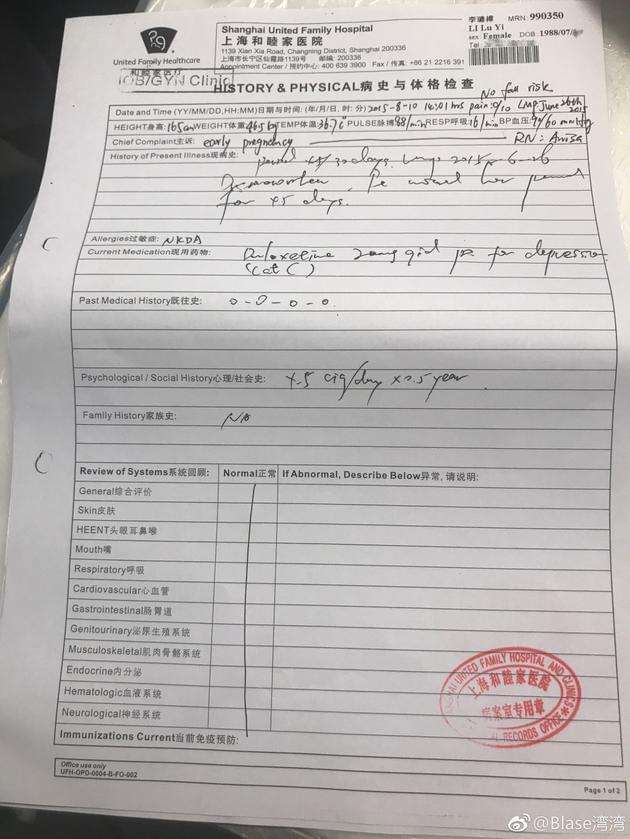 United Family Healthcare
和睦家医疗
OB/GYN Clinic
Shanghai United Family Hospital
上海和睦家医院
1139 Xian Xia Road, Changning District, Shanghai 200336
上海市长宁区仙霞路1139号 邮编: 200336
Appointment Center / 预约中心: 400 639 3900 Fax / 传真: +86 21 2216 391
MRN: 990350
LI Lu Yi
Female DOB 1988/07/
Tel
HISTORY & PHYSICAL 病史与体格检查
No fall risk
Date and Time (YY/MM/DD,HH:MM)日期与时间: (年/月/日, 时: 分) 2015-8-10 14:01 hrs pain: 0/10 LMP June 26th 2015
HEIGHT身高: 165cm WEIGHT体重: 46.5 kg TEMP体温: 36.7°C PULSE脉搏: 88/min RESP呼吸: 16/min BP血压: 90/60 mmHg
Chief Complaint主诉: early pregnancy RN: Anisa
History of Present Illness现病史:
period 45/30 days. 2015-6-26
for 45 days.
Allergies过敏症: NKDA
Current Medication现用药物: Duloxetine 20mg qid for depression
(cat C)
Past Medical History既往史: 0-0-0-0
Psychological / Social History心理/社会史: 4-5 cig/day x0.5 year.
Family History家族史: NA
Review of Systems系统回顾: Normal正常 If Abnormal, Describe Below异常, 请说明:
General综合评价
Skin皮肤
HEENT头眼耳鼻喉
Mouth嘴
Respiratory呼吸
Cardiovascular心血管
Gastrointestinal肠胃道
Genitourinary泌尿生殖系统
Musculoskeletal肌肉骨骼系统
Endocrine内分泌
Hematologic血液系统
Neurological神经系统
Immunizations Current当前免疫预防:
UNITED FAMILY HOSPITAL AND CLINICS
上海和睦家医院
病案室专用章
RECORDS OFFICE
Office use only
UFH-OPD-0004-B-FO-002
Page 1 of 2
@Blase湾湾